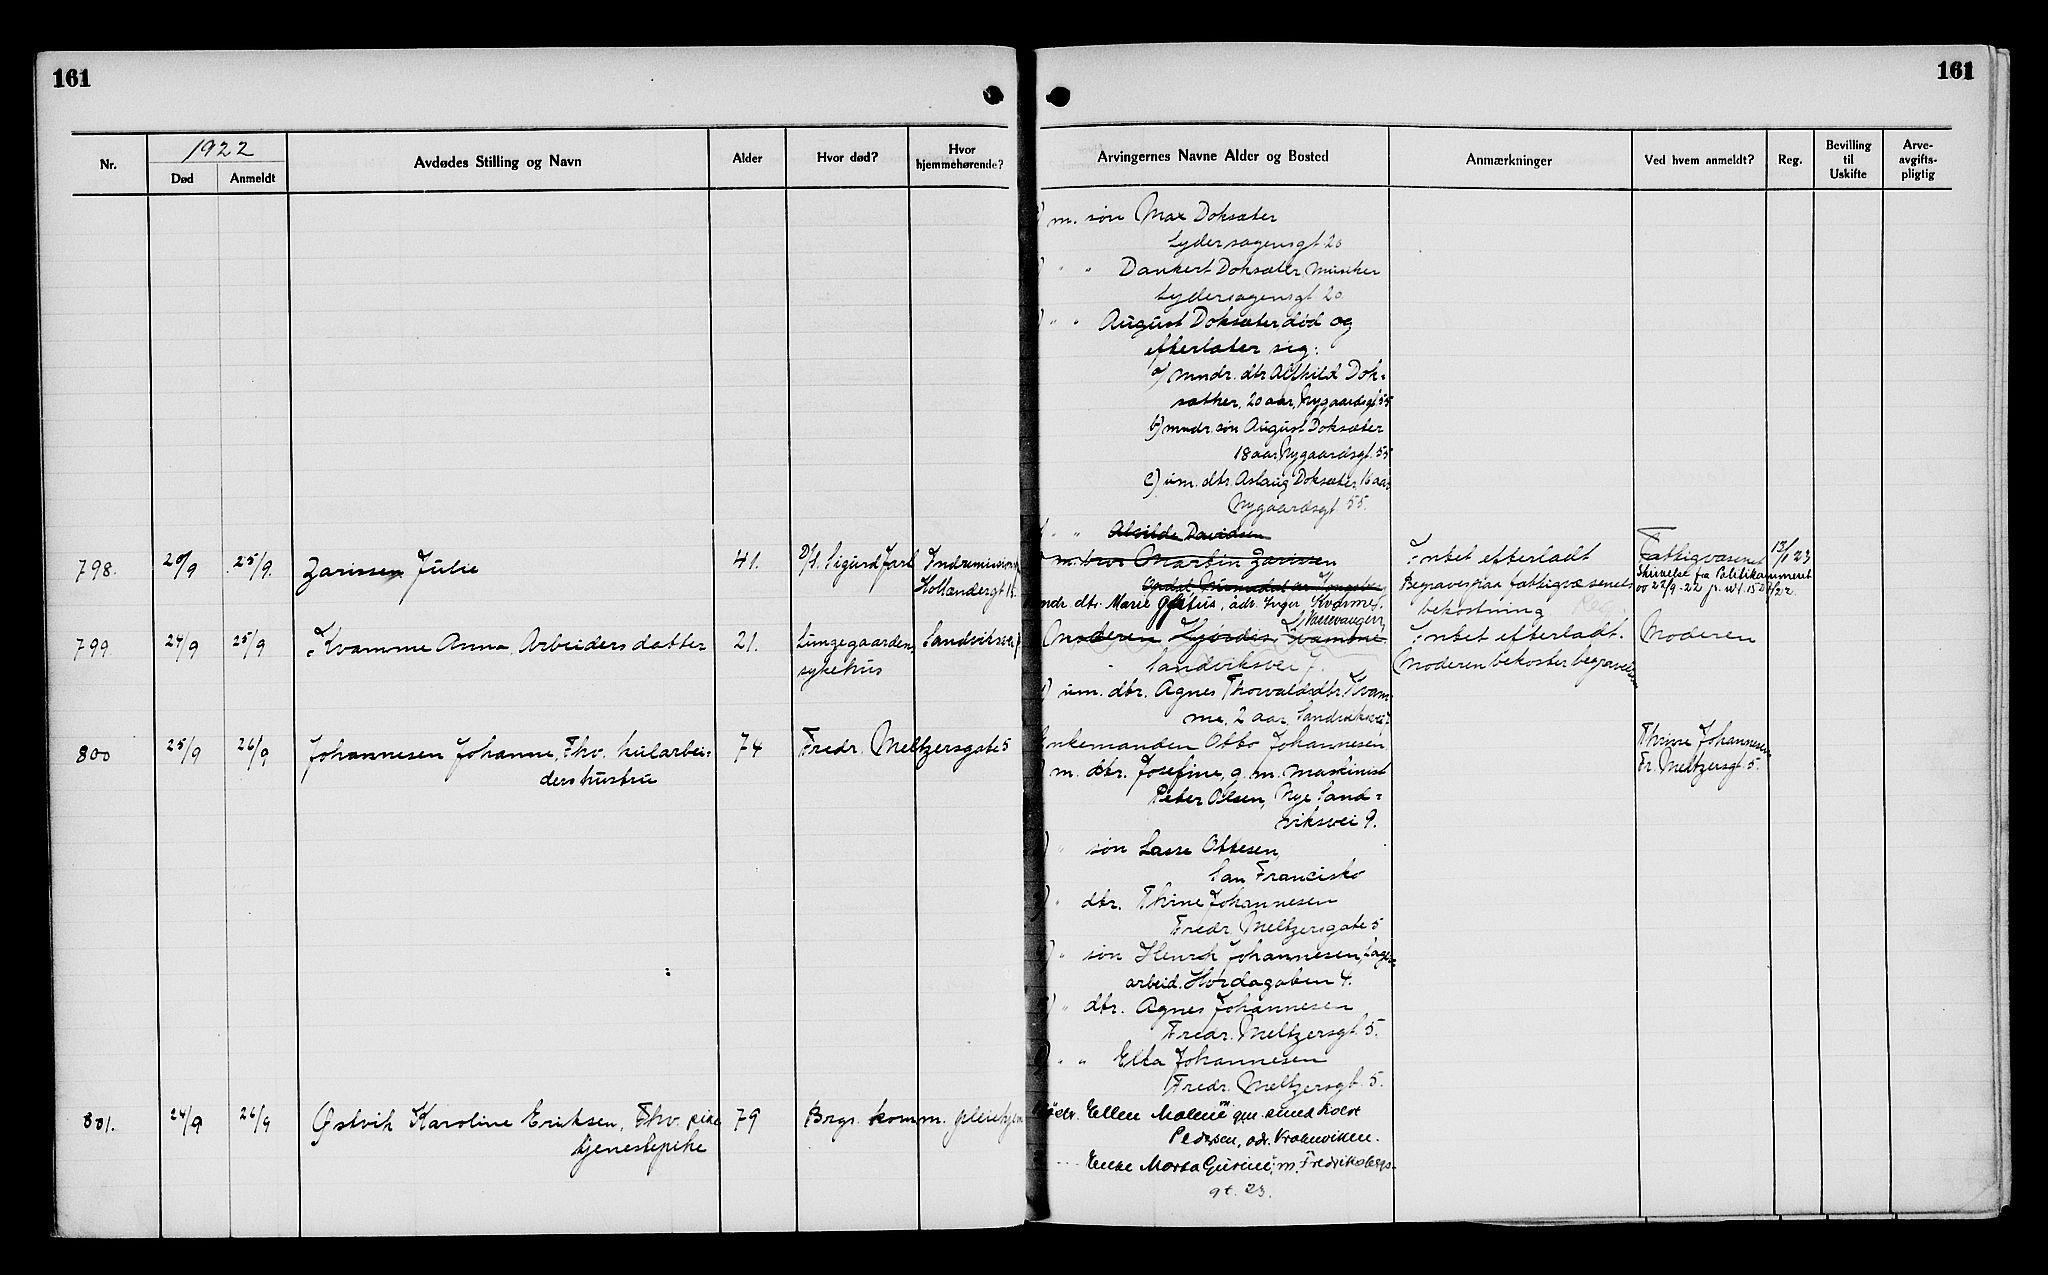 161
161
Nr.
1922
Død
Anmeldt
Avdødes Stilling og Navn
Alder
Hvor død?
Hvor hjemmehørende?
Arvingernes Navne Alder og Bosted
Anmærkninger
Ved hvem anmeldt?
Reg.
Bevilling til Uskifte
Arve-avgifts-pligtig
m. søn Max Doksæter
Lydersagensgt 20
" " Dankert Doksæter, Musiker
Lydersagensgt 20
" " August Doksæter død og
efterlater sig:
a/ mndr. dtr. Alfhild Dok-
sæther, 20 aar, Nygaardsgt 55
b) mndr. søn August Doksæter
18 aar, Nygaardsgt. 55
c) um. dtr. Aslaug Doksæter, 16 aar
Nygaardsgt 55.
" " Davidsen
798. 20/9 25/9. Zarissen Julie 41. D/S. Sigurd Jarl Indremissionen
Hollendergt 15.
m. bror Martin Zarissen
mdr. dtr. Marie
Intet efterladt
Begraves paa fattigvæsenets
bekostning
Fattigvæsenet
Skrivelse fra Politikammeret
13/1 23
799 24/9 25/9 Kvamme Anna, Arbeiders datter 21. Lungegaardens
sykehus
Sandviksvei 7
Moderen Hjørdis Kvamme
Sandviksvei 7.
um. dtr. Agnes Thorvaldsdtr. Kvam-
me, 2 aar, Sandviksvei 7
Intet efterladt.
Moderen bekoster begravelsen
Moderen
800 25/9 26/9 Johannesen Johanne, Fhv. kularbei-
ders hustru
74 Fredr. Meltzersgate 5
Enkemanden Otto Johannesen
m. dtr. Josefine, g. m. maskinist
Peter Olsen, Nye Sand-
viksvei 9.
" søn Lasse Ottesen,
San Francisko
" dtr. Thrine Johannesen
Fredr. Meltzersgate 5
" søn Henrik Johannesen, Lager-
arbeid. Hordagaten 4.
" dtr. Agnes Johannesen
Fredr. Meltzersgt. 5.
" " Elka Johannesen
Fredr. Meltzersgt. 5.
Thrine Johannesen
Fr. Meltzersgt 5.
801. 24/9 26/9 Østvik Karoline Eriksen, Fhv. pike
tjenestepike
79 Brgs. komm. pleiehjem
Ellen Malene gm.
Pedersen, adr. Kroken
Enke Marta m. Fredriksbergs-
gt. 23.